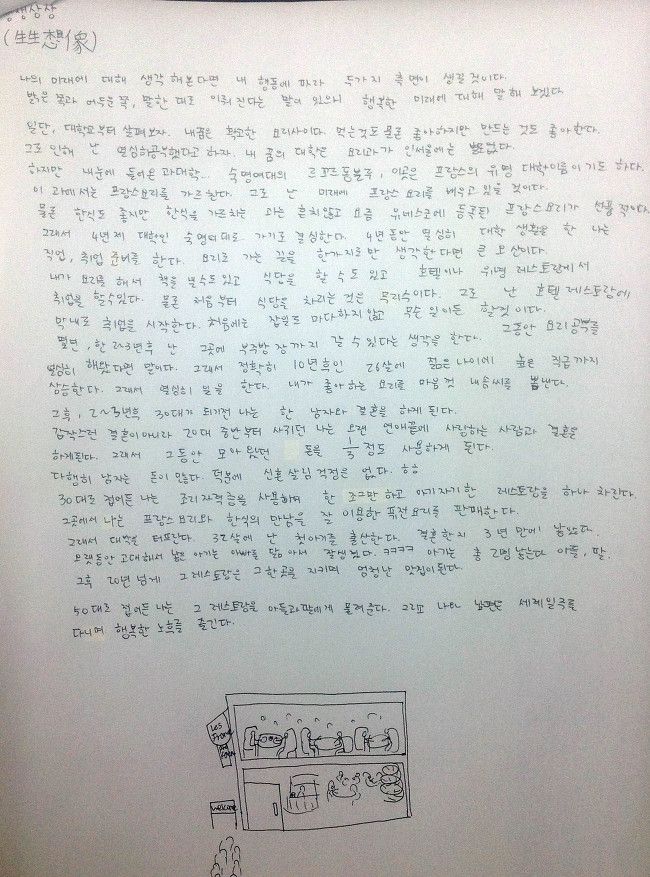 생생상상
(生生想像)
나의 미래에 대해 생각해본다면 내 행동에 따라 두가지 측면이 생길것이다.
밝은쪽과 어두운쪽, 말한 대로 이뤄진다는 말이 있으니 행복한 미래에 대해 말해 보겠다
일단, 대학교부터 살펴보자. 내꿈은 확고한 요리사이다. 먹는것도 물론 좋아하지만 만드는 것도 좋아한다.
그로 인해 난 열심히공부했다고 하자. 내 꿈의 대학은 요리과가 인서울에는 별로없다.
하지만 내눈에 들어온 과대학.. 숙명여대의 르꼬르동블루, 이곳은 프랑스의 유명 대학이름이기도 하다.
이 과에서는 프랑스요리를 가르친다. 그로 난 미래에 프랑스 요리를 배우고 있을 것이다.
물론 한식도 좋지만 한식을 가르치는 과는 흔치않고 요즘 유네스코에 등록된 프랑스요리가 선풍적이다.
그래서 4년제 대학인 숙명여대로 가기로 결심한다. 4년동안 열심히 대학 생활을 한 나는
직업, 취업 준비를 한다. 요리로 가는 길을 한가지로만 생각한다면 큰 오산이다.
내가 요리를 해서 책을 낼수도있고 식당을 할 수도 있고 호텔이나 유명 레스토랑에서
취업을 할수있다. 물론 처음부터 식당을 차리는것은 무리수이다. 그로 난 호텔 레스토랑에
막내로 취업을 시작한다. 처음에는 잡일도 마다하지않고 무슨 일이든 할것이다.
몇년, 한2~3년후 난 그곳에 부주방장까지 갈 수있다는 생각을 한다. 그동안 요리공부를
열심히 해왔다면 말이다. 그래서 정확히 10년후인 26살에 젊은나이에 높은 직급까지
상승한다. 그래서 열심히 일을 한다. 내가 좋아하는 요리를 마음껏 내솜씨를 뽐낸다.
그후, 2~3년후 30대가 되기전 나는 한 남자와 결혼을 하게 된다.
갑작스런 결혼이아니라 20대 중반부터 사귀던 나는 오랜 연애끝에 사랑하는 사람과 결혼을
하게된다. 그래서 그동안 모아뒀던 돈을 1/3 정도 사용하게 된다.
다행히 남자는 돈이 있다. 덕분에 신혼살림걱정은 없다. ㅎㅎ
30대로 접어든 나는 조리자격증을 사용하며 한 조그만하고 아기자기한 레스토랑을 하나 차린다.
그곳에서 나는 프랑스요리와 한식의 만남을 잘 이용한 퓨전요리를 판매한다.
그래서 대박을 터뜨린다. 32살에 난 첫아기를 출산한다. 결혼한지 3년만에 낳았다.
오랫동안 고대해서 낳은 아기는 아빠를 닮아서 잘생겼다. ㅋㅋㅋㅋ 아기는 총 2명 낳는다 아들, 딸.
그후 20년 넘게 그레스토랑은 그한곳을 지키며 엄청난 맛집이된다.
50대로 접어든 나는 그 레스토랑을 아들과딸에게 물려준다. 그리고 나와 남편은 세계일주를
다니며 행복한 노후를 즐긴다.
welcome